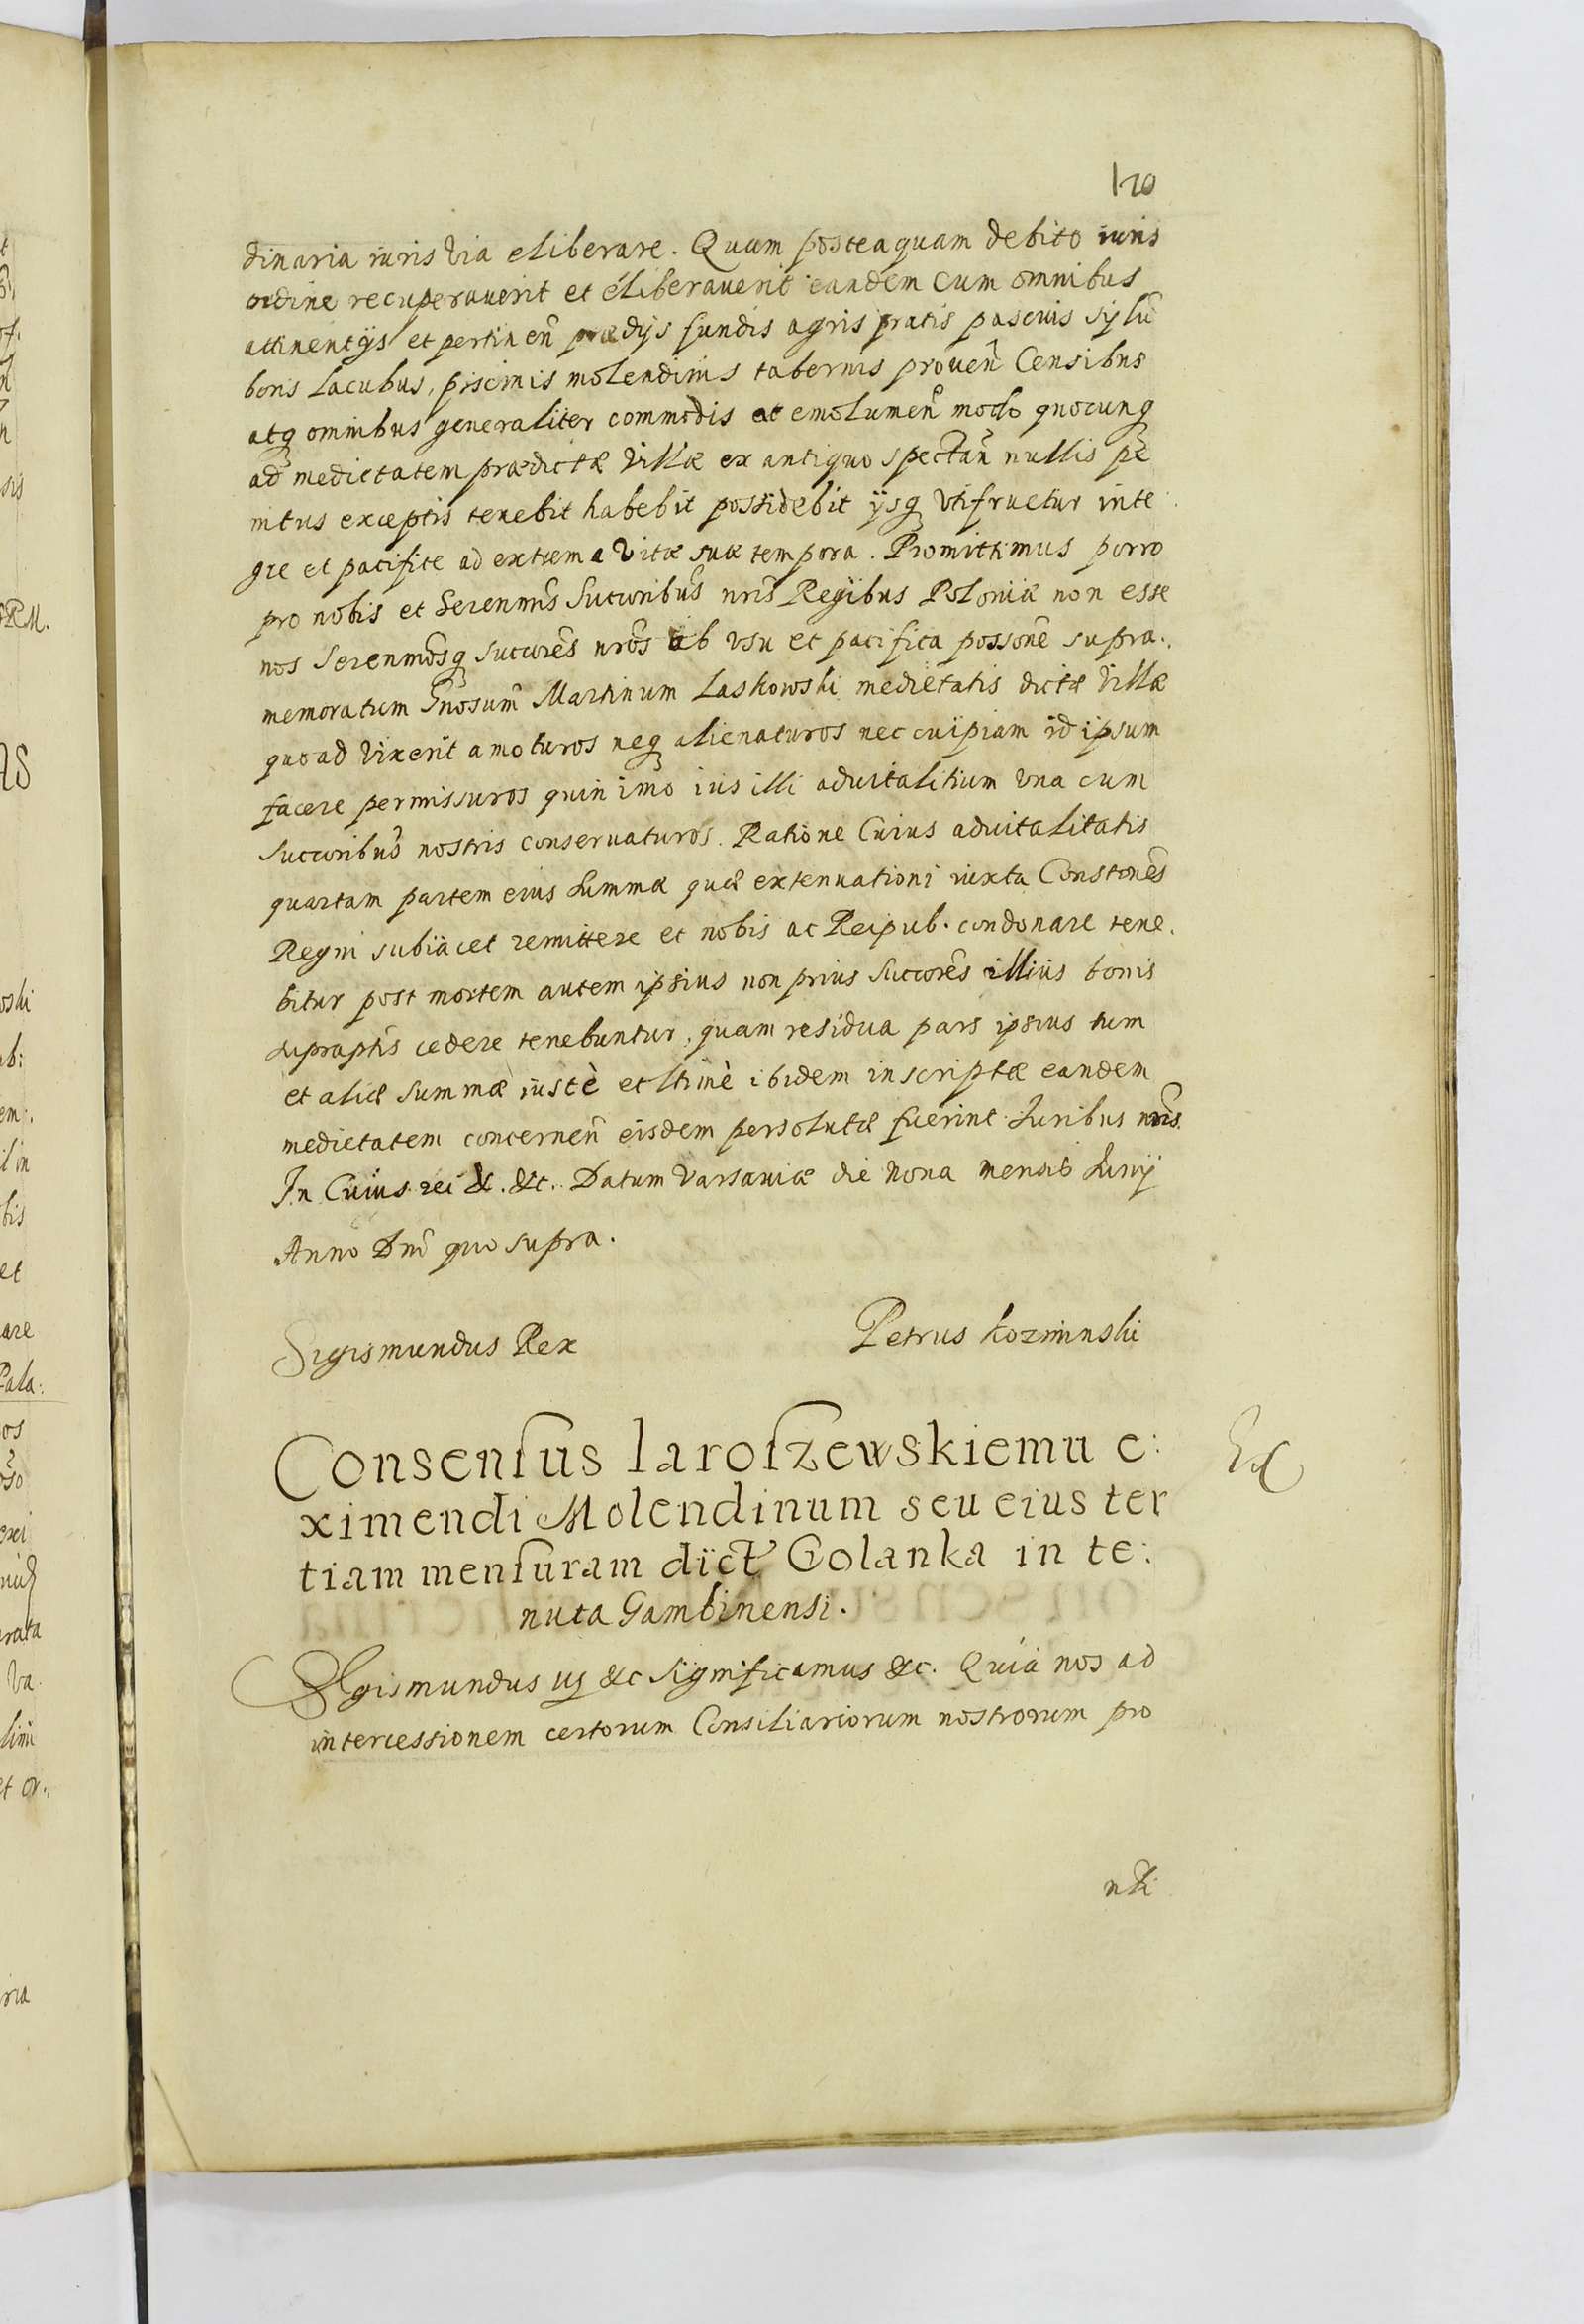 120
dinaria iuris via eliberare. Quam posteaquam debito iuris
ordine recuperauerit et éliberauerit eandem cum omnibus
attinentijs et pertinen̄ prædijs fundis agris pratis pascuis syluis
boris lacubus, piscinis molendinis tabernis prouen̄ Censibus
atq omnibus generaliter commodis et emolumen̄ modo quocunq
ad medietatem prædictæ villæ ex antiquo spectan̄ nullis pe
nitus exceptis tenebit habebit possidebit ijsq vtifruetur inte
gre et pacifice ad extrema vitæ suæ tempora. Promittimus porro
pro nobis et Serenmis̄ Succoribus̄ nris̄ Regibus Poloniæ non esse
nos Serenmosq̄ succores̄ nros̄ ab vsu et pacifica possone̅ supra.
memoratum Gnosum̄ Martinum Laskowski medietatis dictæ villæ
quoad vixerit amoturos neq alienaturos nec cuipiam id ipsum
facere permissuros quin imo ius illi aduitalitium vna cum
succoribus̄ nostris conseruaturos. Ratione Cuius aduitalitatis
quartam partem eius summæ quæ extenuationi iuxta Constones̄
Regni subiacet remittere et nobis ac Reipub. condonare tene.
bitur post mortem autem ipsius non prius succores̄ illius bonis
supraptis̄ cedere tenebuntur, quam residua pars ipsius tum
et aliæ summæ iustè et ltimè ibidem inscriptæ eandem
medietatem concernen̄ eisdem persolutæ fuerint. Iuribus nris̄.
In Cuius rei &. &c. Datum Varsauiæ die nona mensis Iunij
Anno Dni̅ quo supra.
Sigismundus Rex Petrus Kozminski
Consensus Iaroszewskiemu e:
ximendi Molendinum seu eius ter
tiam mensuram dict̄ Golanka in te:
nuta Gambinensi.
Ex
Sigismundus &c significamus &c. Quia nos ad
intercessionem certorum Consiliariorum nostrorum pro